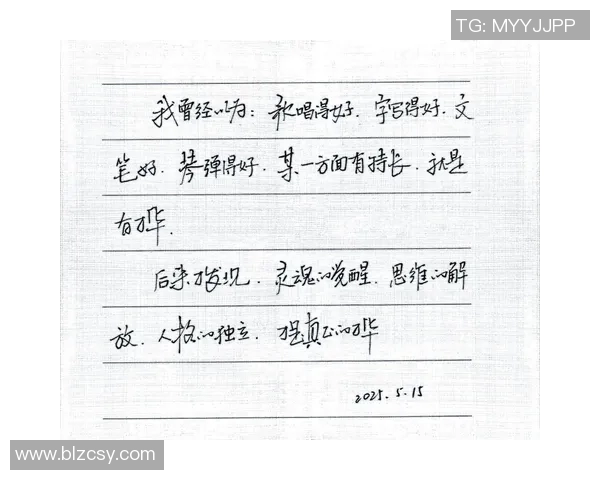 TG: MYYJJPP
我曾经以为：歌唱得好、字写得好、文
笔好、琴弹得好、某一方面有特长、就是
有才华、
后来才发现、灵魂的觉醒、思维的解
放、人格的独立、才是真正的才华
2025.5.15
www.blzcsy.com